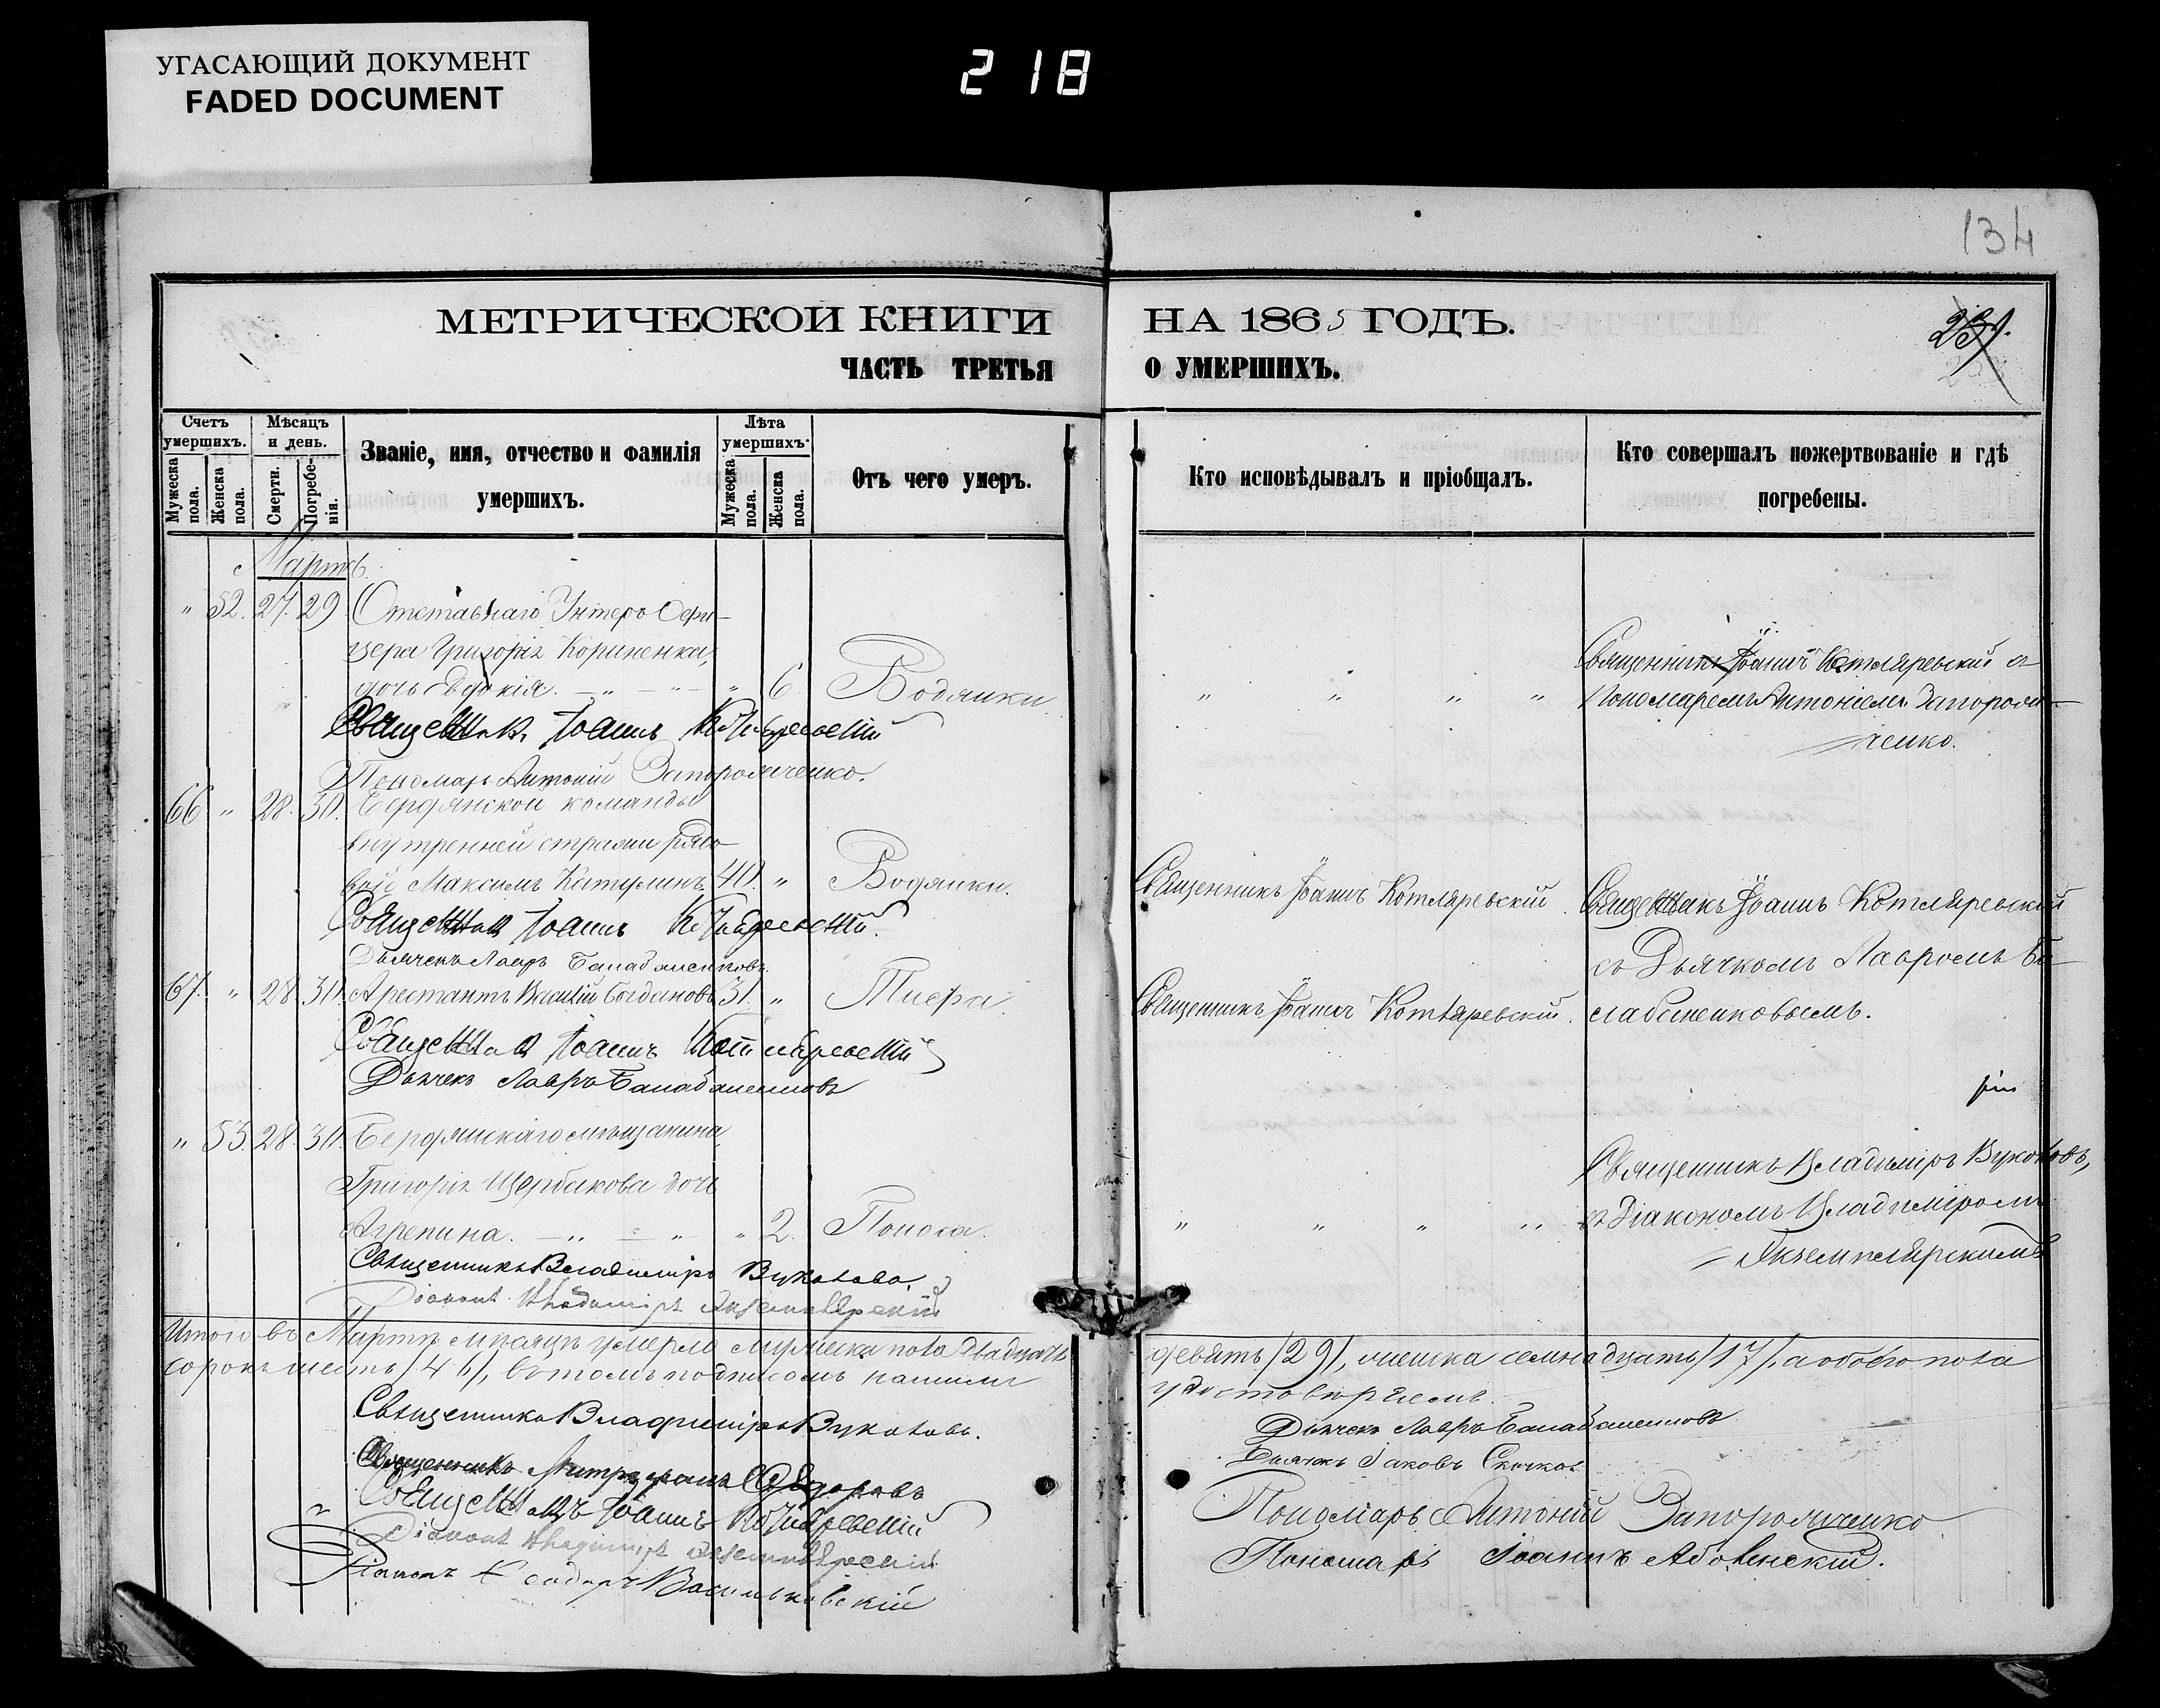 УГАСАЮЩИЙ ДОКУМЕНТ
FADED DOCUMENT
218
134
МЕТРИЧЕСКОЙ КНИГИ НА 1865 ГОДЪ.
231.
ЧАСТЬ ТРЕТЬЯ О УМЕРШИХЪ.
Счетъ умершихъ.
Мужеска пола.
Женска пола.
Мѣсяцъ и день.
Смерти.
Погребенія.
Званіе, имя, отчество и фамилія
умершихъ.
Лѣта умершихъ.
Мужеска пола.
Женска пола.
Отъ чего умеръ.
Кто исповѣдывалъ и пріобщалъ.
Кто совершалъ пожертвованіе и гдѣ
погребены.
Мартъ
" 52. 27. 29 Отставнаго Унтеръ Офи-
цера Григорія Кориненка,
дочь Евдокія. " 6 Водянки
Священникъ Іоаннъ Котляревскій съ
Пономаремъ Антоніемъ Запорож-
ченко.
Священникъ Іоаннъ Котляревскій
Пономарь Антоній Запорожченко.
66 " 28. 30. Бердянской команды
внутренней стражи рядо-
вой Максимъ Катулинъ 40. " Водянки.
Священникъ Іоаннъ Котляревскій
Священникъ Іоаннъ Котляревскій
съ Дьячкомъ Лавромъ Ба-
лабаненковымъ.
Священникъ Іоаннъ Котляревскій.
Дьячекъ Лавръ Балабаненковъ.
67. " 28. 30. Арестантъ Василій Богдановъ 31. " Тифа
Священникъ Іоаннъ Котляревскій.
Священникъ Іоаннъ Котляревскій
Дьячекъ Лавръ Балабаненковъ
" 53. 28. 30. Бердянскаго мѣщанина
Григорія Щербакова дочь
Агрепина. " 2. Поноса.
Священникъ Владиміръ Вукотовъ,
съ Діакономъ Владиміромъ
Экземплярскимъ
Священникъ Владиміръ Вукотовъ.
Діаконъ Владиміръ Экземплярскій
Итого въ Мартѣ мѣсяцѣ умерло мужеска пола двадцать девять /29/, женска семнадцать /17/, а обоего пола
сорокъ шесть /46/, въ томъ подписомъ нашимъ удостовѣряемъ.
Священникъ Владиміръ Вукотовъ.
Священникъ Митрофанъ Ѳедоровъ
Священникъ Іоаннъ Котляревскій
Діаконъ Владиміръ Экземплярскій
Діаконъ Ѳеодоръ Васильковскій
Дьячекъ Лавръ Балабаненковъ
Дьячекъ Іаковъ Скочко
Пономарь Антоній Запорожченко
Пономарь Іоаннъ Абовенскій.